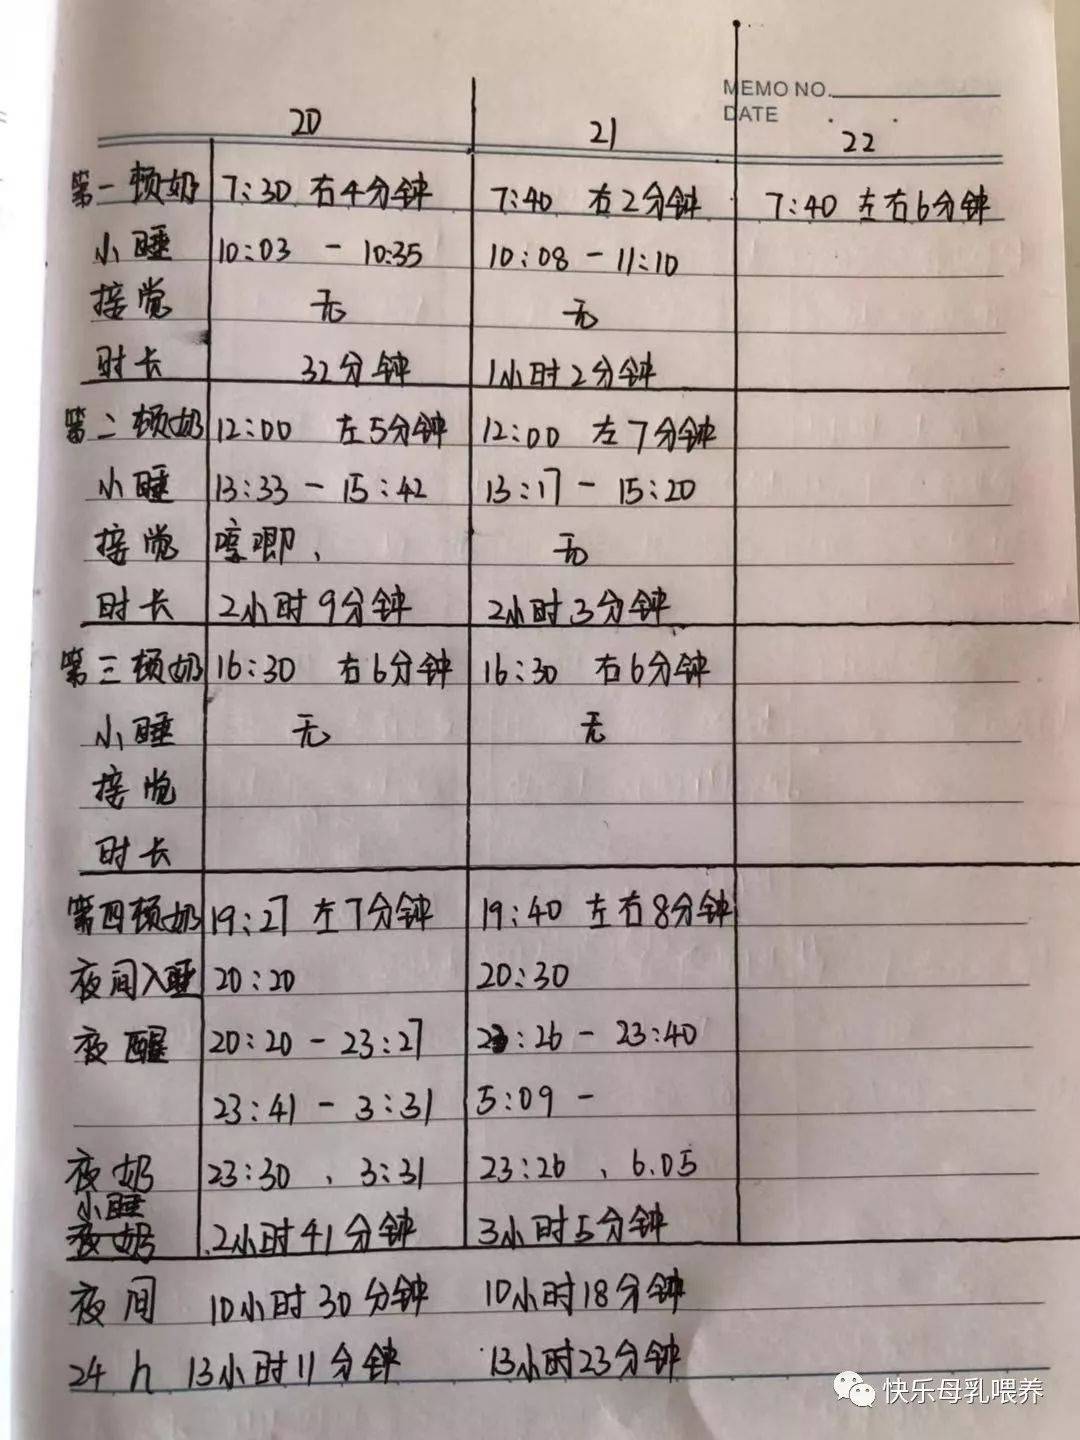 MEMO NO.
DATE
20 21 22
第一顿奶 7:30 右4分钟 7:40 右2分钟 7:40 左右6分钟
小睡 10:03 - 10:35 10:08 - 11:10
接觉 无 无
时长 32分钟 1小时2分钟
第二顿奶 12:00 左5分钟 12:00 左7分钟
小睡 13:33 - 15:42 13:17 - 15:20
接觉 哼唧、 无
时长 2小时9分钟 2小时3分钟
第三顿奶 16:30 右6分钟 16:30 右6分钟
小睡 无 无
接觉
时长
第四顿奶 19:27 左7分钟 19:40 左右8分钟
夜间入睡 20:20 20:30
夜醒 20:20 - 23:27 23:26 - 23:40
23:41 - 3:31 5:09 -
夜奶 23:30 、 3:31 23:26 、 6.05
小睡
夜奶 2小时41分钟 3小时5分钟
夜间 10小时30分钟 10小时18分钟
24h 13小时11分钟 13小时23分钟
快乐母乳喂养